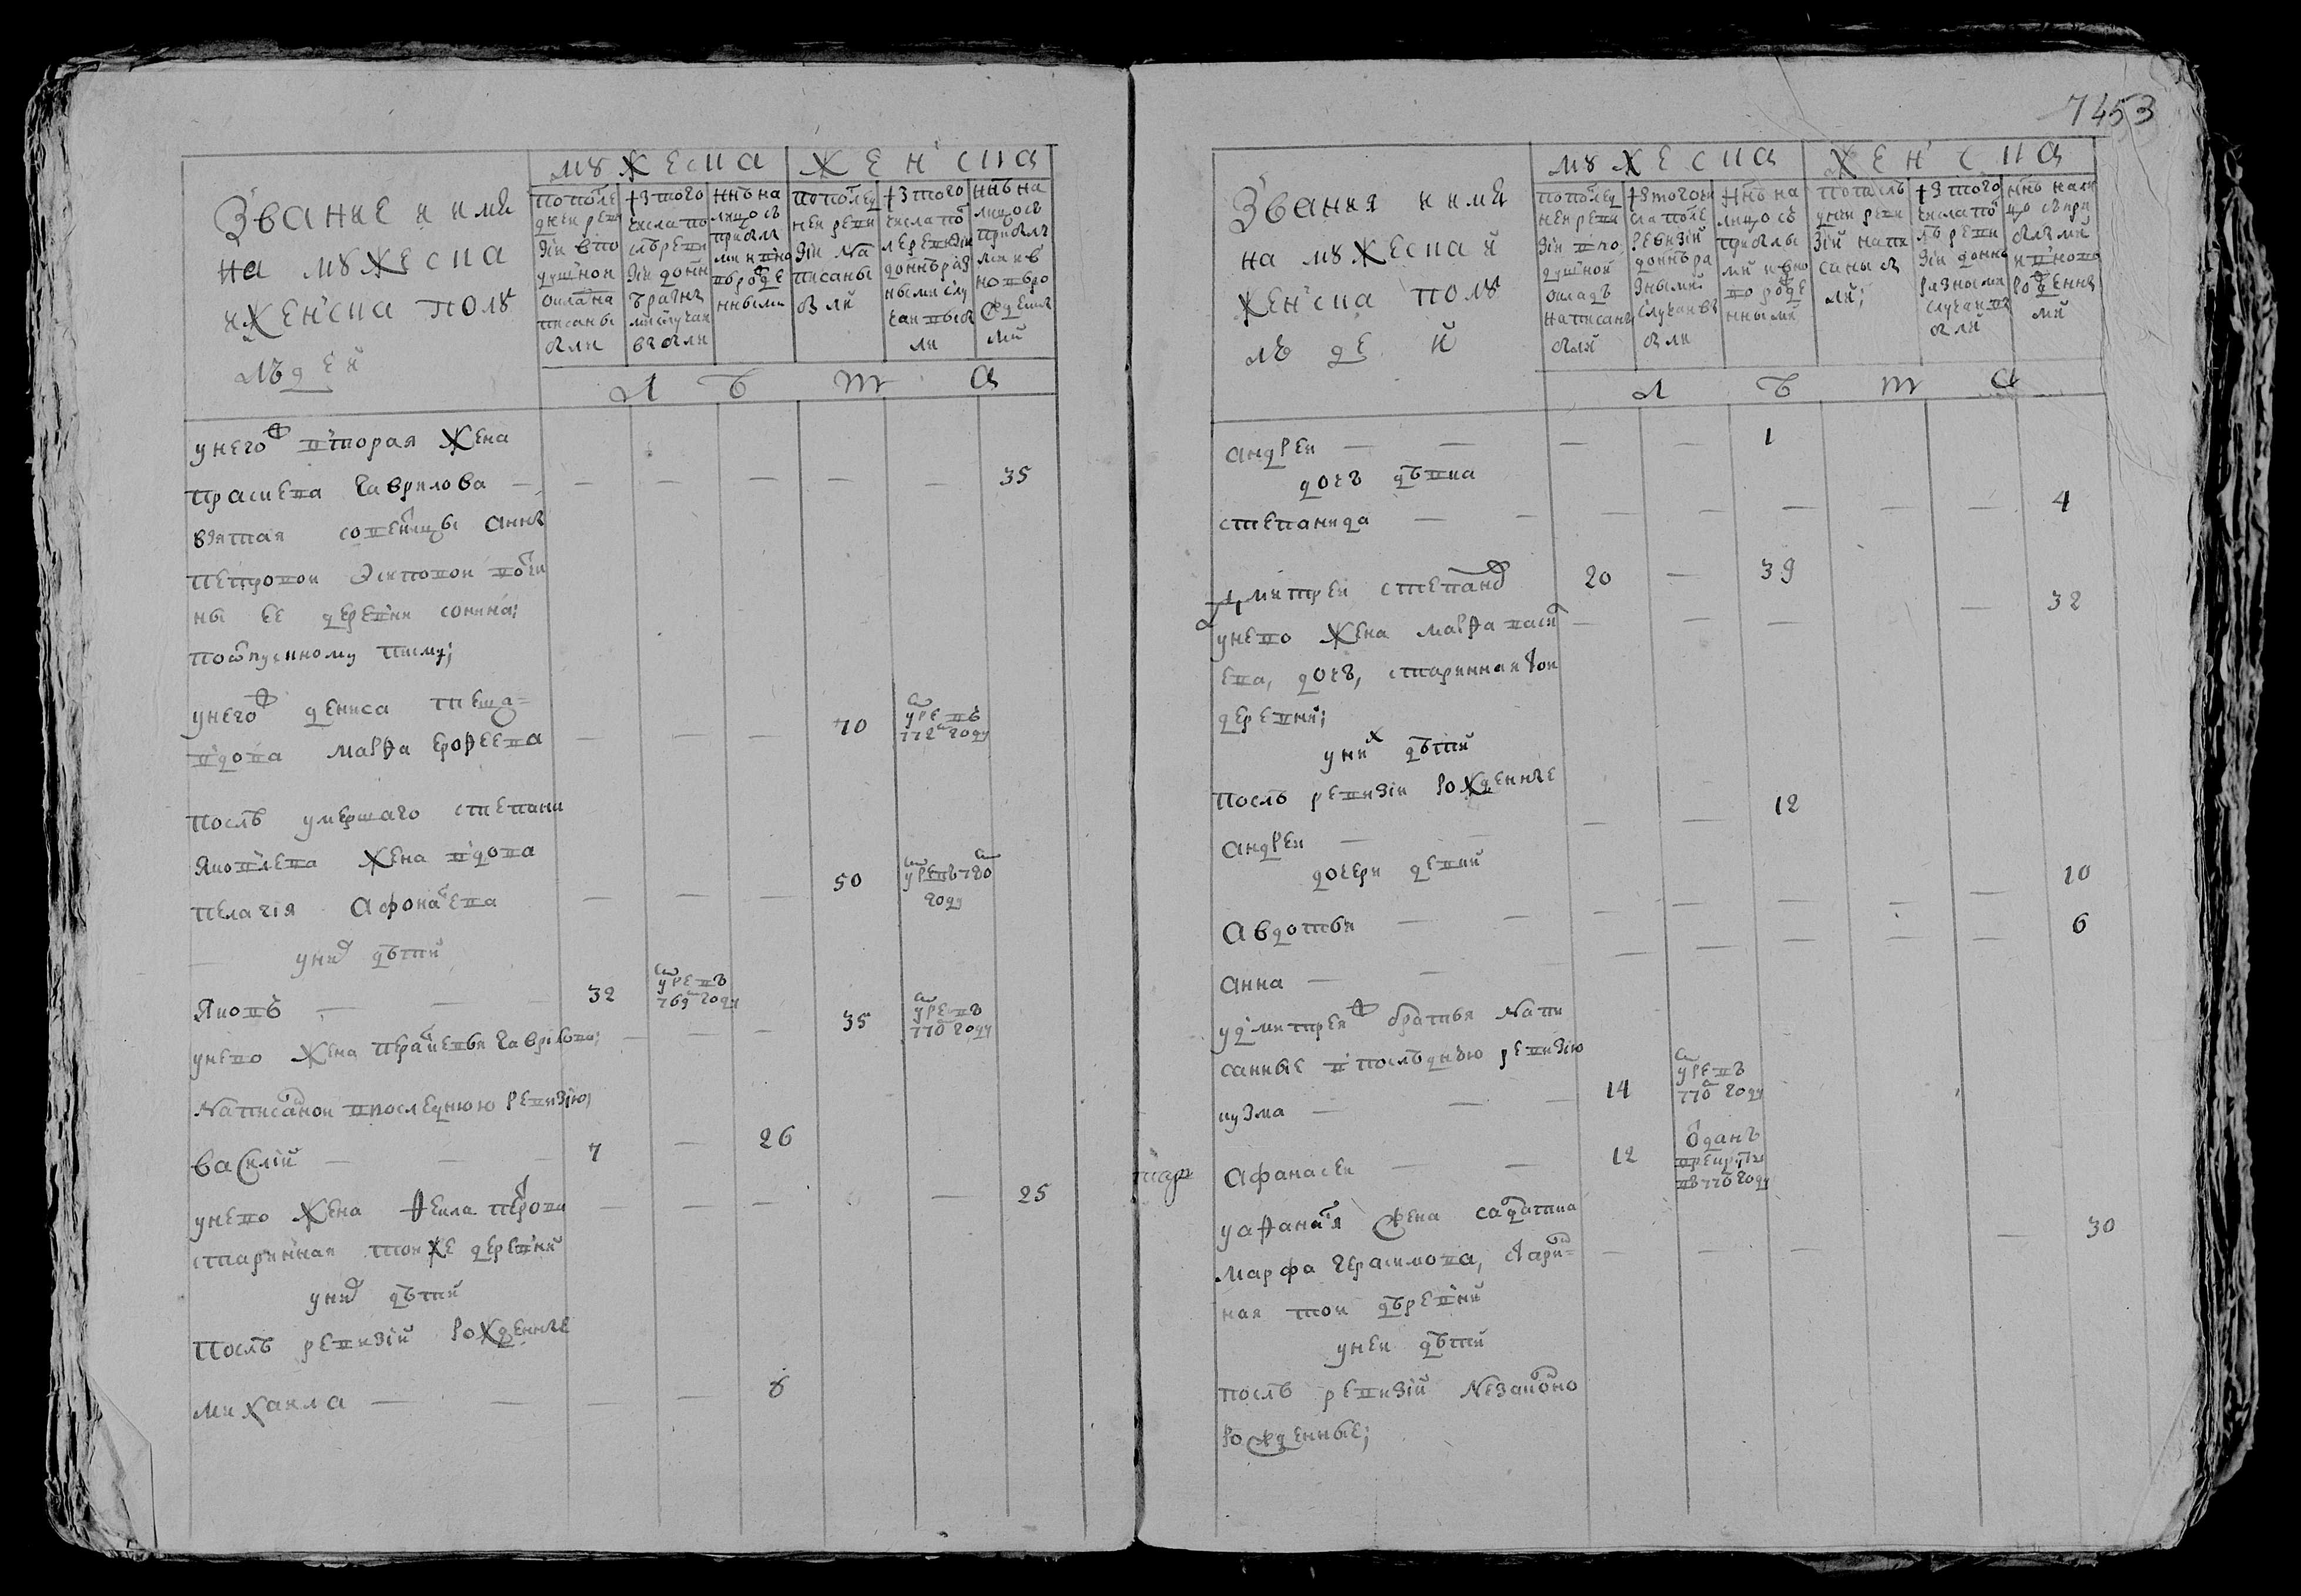 7453
Звание и имя
на мужеска
и женска полу
людей
мужеска
женска
по последней ревизии в подушной оклад написаны были
из того числа после ревизии до ныне разными случаи выбыли
ныне на лицо с прибылыми и вновь рожденными
по последней ревизии написаны были
из того числа после ревизии до ныне разными случаи выбыли
ныне на лицо с прибылыми и вновь рожденными
лѣта
у него ж вторая жена
Прасковя Гаврилова — — — — — — 35
взятая
Петровой Осиповой вотчи
ны ее деревни Сонина;
по отпускному писму;
у него ж Дениса теща
вдова Марфа Ерофеева — — — 70 умре в 772м году
послѣ умершаго Степана
Яковлева жена вдова
Пелагия Афонасева — — — 50 умре в 780м году
у них дѣти
Яковъ — — — 32 умре въ 769м году
у него жена Парасковья Гаврилова — — — 35 умре въ 770м году
написанои в последнюю ревизию
Василий — — — 7 — 26
у него жена Фекла Петрова — — — — 25
старинная тои же деревни
у них дѣти
послѣ ревизии рожденные
Михаила — — — — 6
Звания и имя
на мужеска и
женска полу
людей
мужеска
женска
по последней ревизии в подушной окладъ написаны были
из того числа после ревизии до ныне разными случаи выбыли
ныне на лицо съ прибылыми и вновь рожденными
по последней ревизии написаны были
из того числа после ревизии до ныне разными случаи выбыли
ныне на лицо с прибылыми и вновь рожденными
лѣта
Андреи — — — — 1
дочь дѣвка
Степанида — — — — — — — 4
Дмитреи Степанов 20 — 39
у него жена Марфа Васи — — — — 32
ева, дочь, стариннаятои
деревни;
у них дѣти
послѣ ревизии рожденные
Андреи — — — — 12
дочери девки
Авдотья — — — — — — — 10
Анна — — — — — — — 6
у Дмитрея ж братья напи
санные в послѣднюю ревизию
Кузма — — — 14 умре въ 770м году
Афанасеи — — 12 отданъ в рекруты въ 770м году
у Афанасья жена салдатка
Марфа Герасимова, старин= — — — — 30
ная тои дѣревни
у неи дѣти
послѣ ревизии незаконо
рожденные;